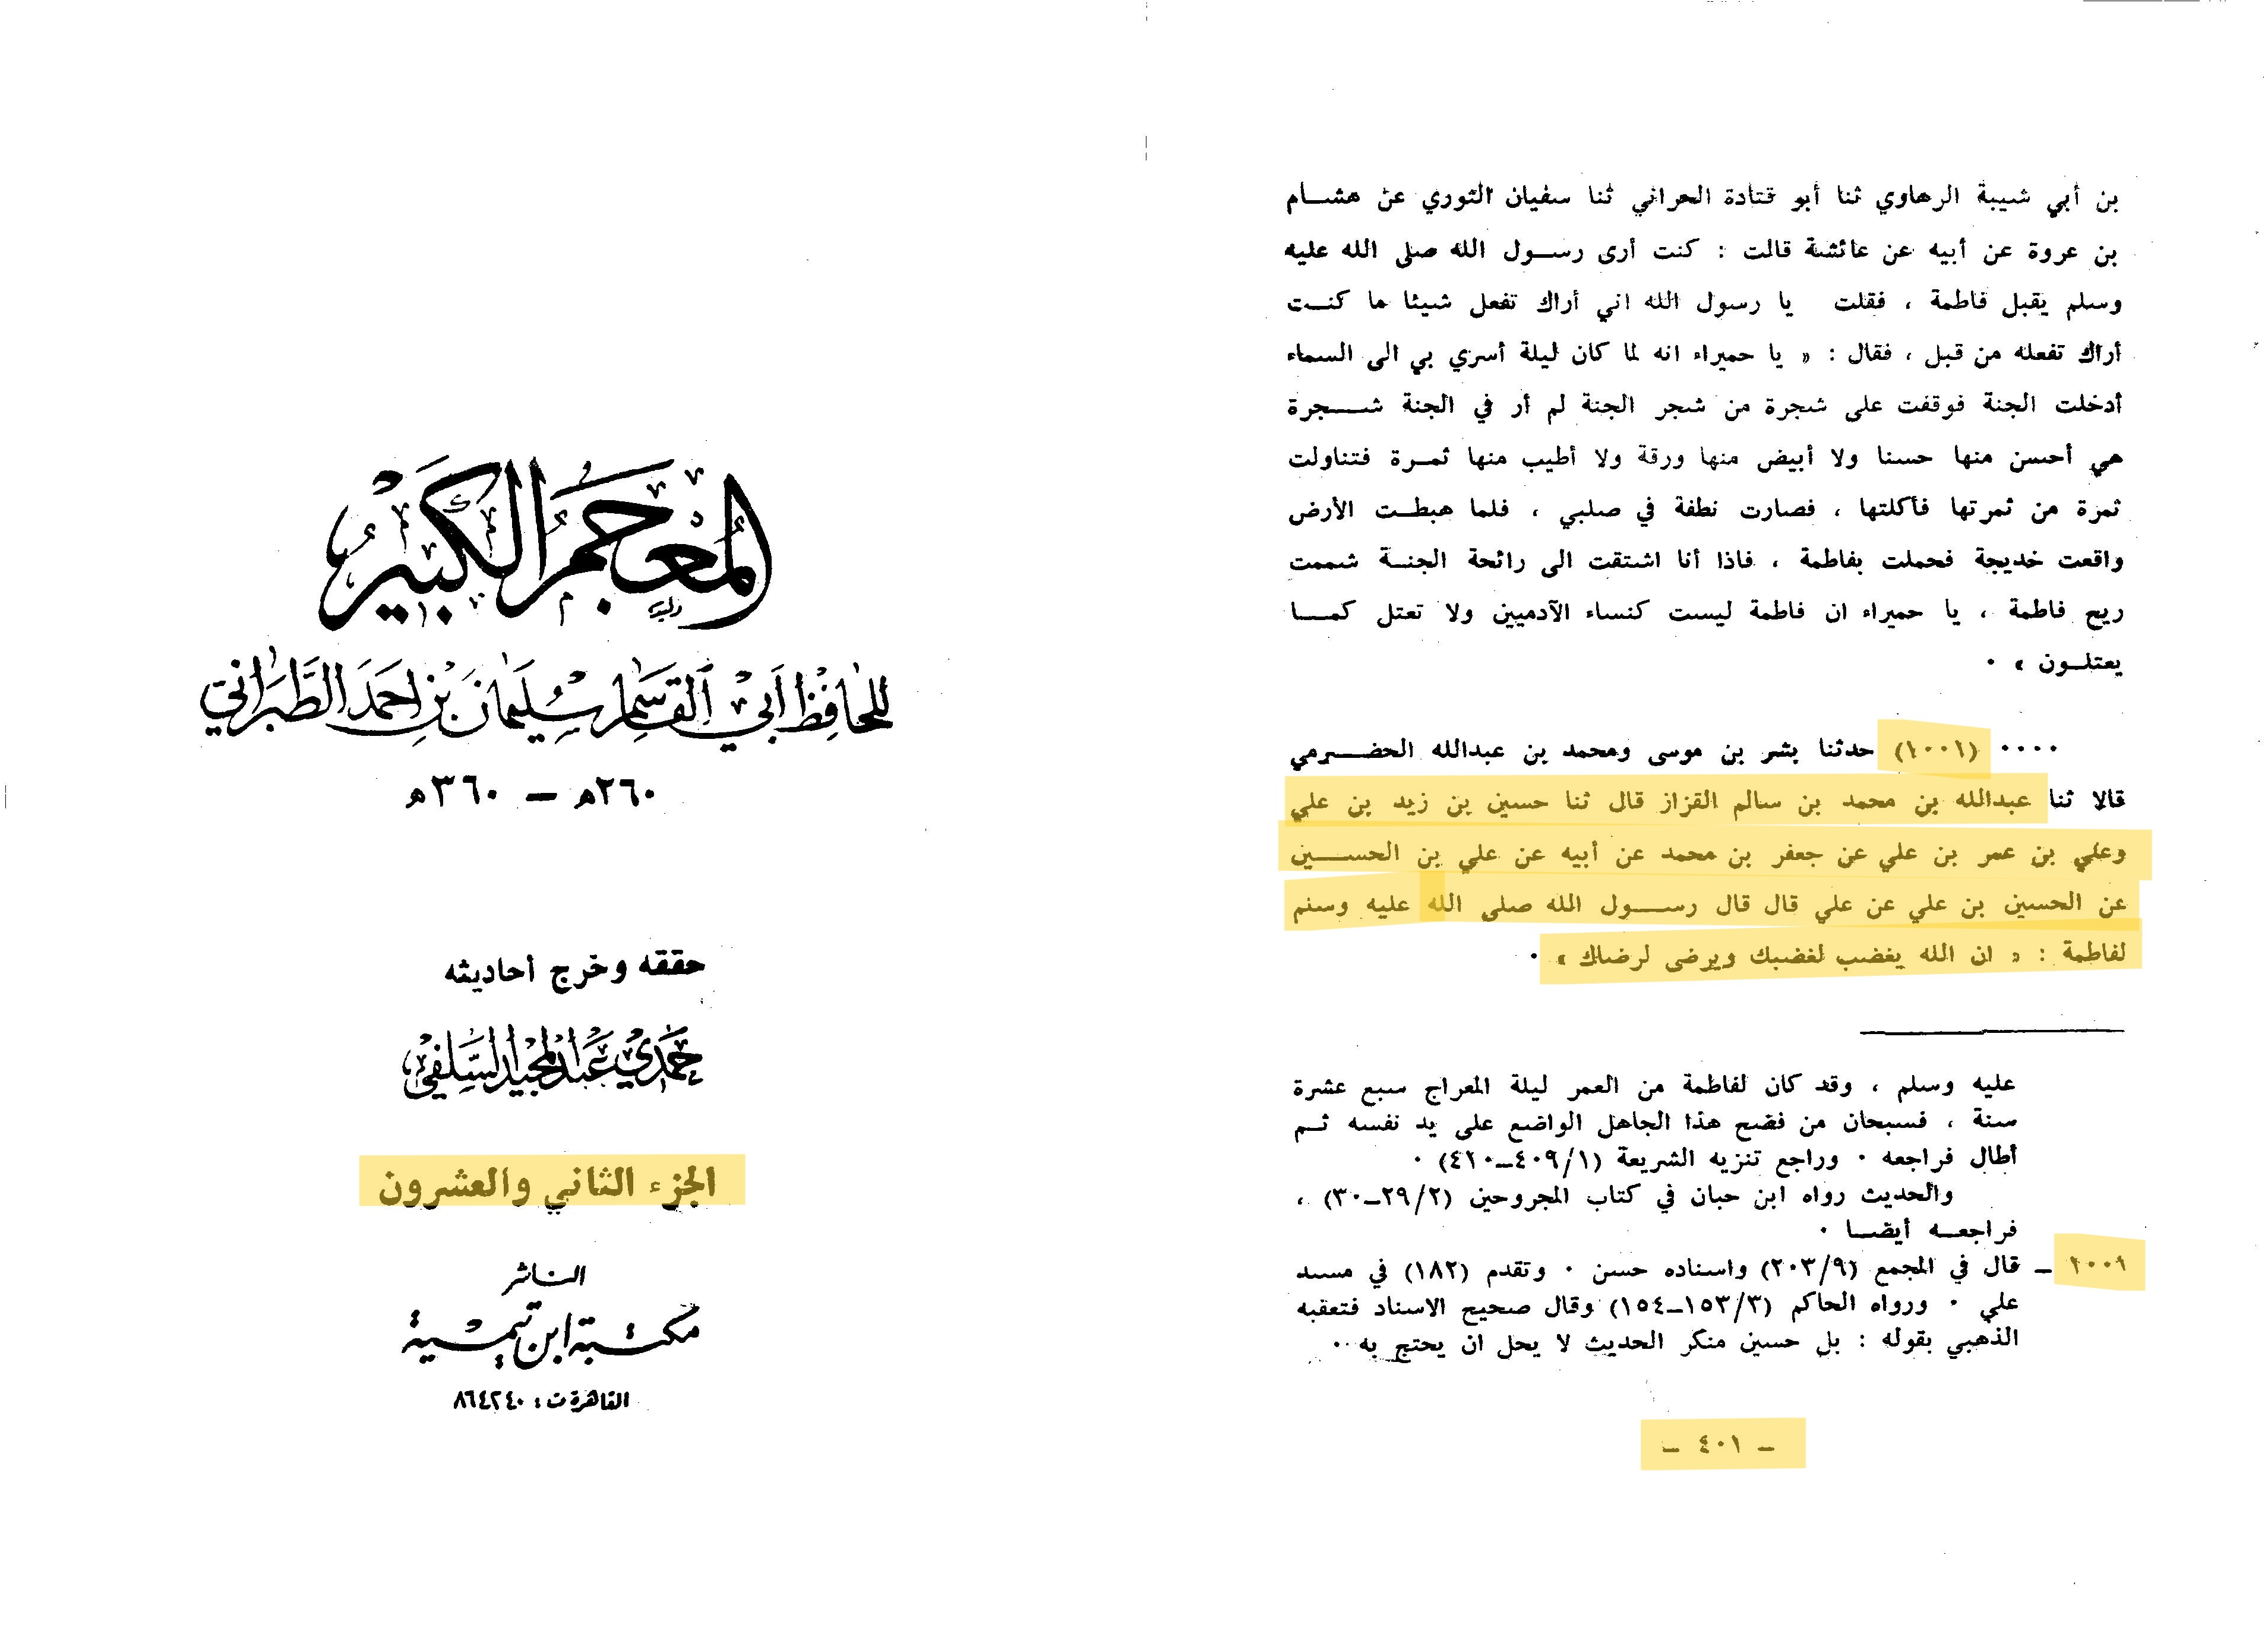 المعجم الكبير
للحافظ أبي القاسم سليمان بن احمد الطبراني
٢٦٠ه – ٣٦٠ه
حققه وخرج أحاديثه
حمدي عبد المجيد السلفي
الجزء الثاني والعشرون
الناشر
مكتبة ابن تيمية
القاهرة ت : ٨٦٤٢٤٠
بن أبي شيبة الرهاوي ثنا أبو قتادة الحراني ثنا سفيان الثوري عن هشام
بن عروة عن أبيه عن عائشة قالت : كنت أرى رسول الله صلى الله عليه
وسلم يقبل فاطمة ، فقلت يا رسول الله اني أراك تفعل شيئا ما كنت
أراك تفعله من قبل ، فقال : « يا حميراء انه لما كان ليلة أسري بي الى السماء
أدخلت الجنة فوقفت على شجرة من شجر الجنة لم أر في الجنة شجرة
هي أحسن منها حسنا ولا أبيض منها ورقة ولا أطيب منها ثمرة فتناولت
ثمرة من ثمرتها فأكلتها ، فصارت نطفة في صلبي ، فلما هبطت الأرض
واقعت خديجة فحملت بفاطمة ، فاذا أنا اشتقت الى رائحة الجنة شممت
ريح فاطمة ، يا حميراء ان فاطمة ليست كنساء الآدميين ولا تعتل كما
يعتلون » .
.... (١٠٠١) حدثنا بشر بن موسى ومحمد بن عبدالله الحضرمي
قالا ثنا عبدالله بن محمد بن سالم القزاز قال ثنا حسين بن زيد بن علي
وعلي بن عمر بن علي عن جعفر بن محمد عن أبيه عن علي بن الحسين
عن الحسين بن علي عن علي قال قال رسول الله صلى الله عليه وسلم
لفاطمة : « ان الله يغضب لغضبك ويرضى لرضاك » .
عليه وسلم ، وقد كان لفاطمة من العمر ليلة المعراج سبع عشرة
سنة ، فسبحان من فضح هذا الجاهل الواضع على يد نفسه ثم
أطال فراجعه . وراجع تنزيه الشريعة (١/٤٠٩–٤١٠) .
والحديث رواه ابن حبان في كتاب المجروحين (٢/٢٩–٣٠) ،
فراجعه أيضا .
١٠٠١ – قال في المجمع (٩/٢٠٣) واسناده حسن . وتقدم (١٨٢) في مسند
علي . ورواه الحاكم (٣/١٥٣–١٥٤) وقال صحيح الاسناد فتعقبه
الذهبي بقوله : بل حسين منكر الحديث لا يحل ان يحتج به ..
– ٤٠١ –